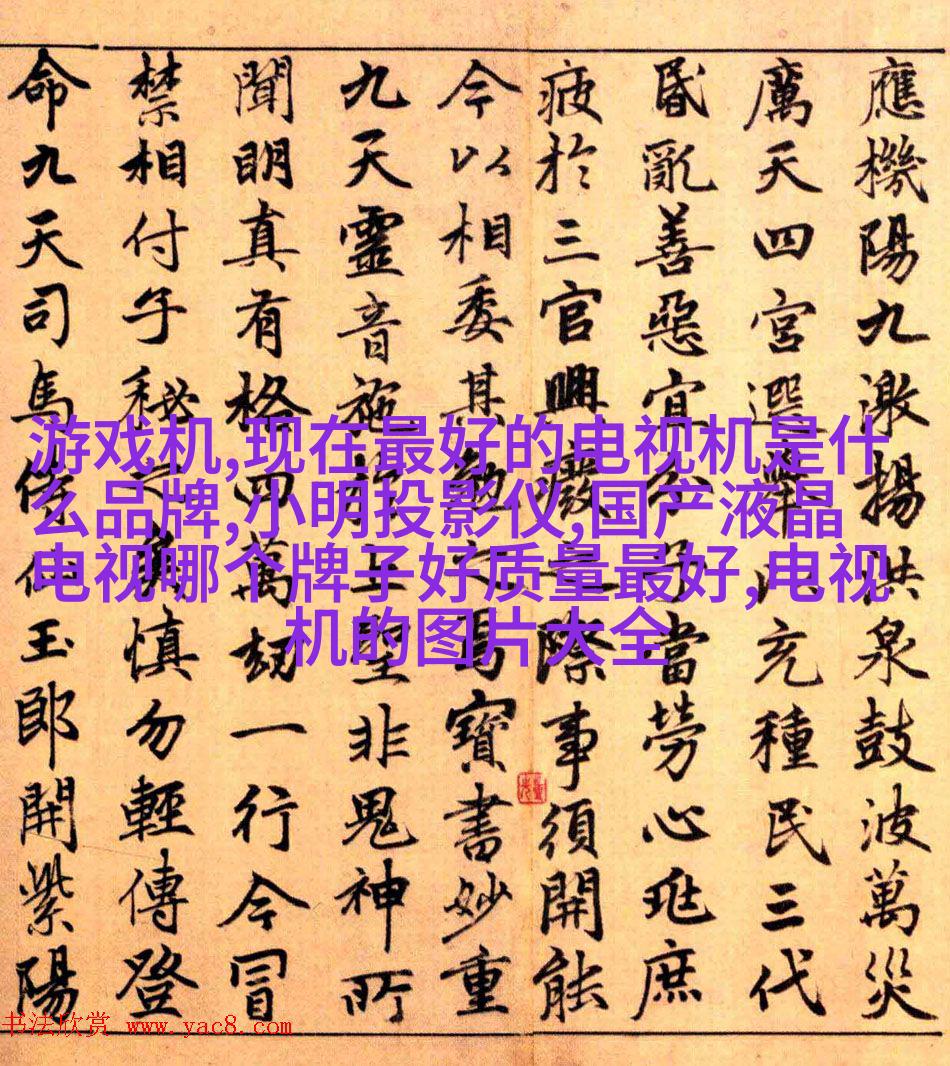 應機陽九激揚洪泉鼓波萬災
厲天四宮選充種民三代
昏亂善惡宜分當勞心兆庶
疲於三官興廢之際事須開能
今以相委其勉之焉寶書妙重
九天靈音施於上聖非鬼神所
聞明真有格四萬劫一行今冒
禁相付子秘之慎勿輕傳登
命九天司馬侍仙玉郎開紫陽
游戏机,现在最好的电视机是什
么品牌,小明投影仪,国产液晶
电视哪个牌子好质量最好,电视
机的图片大全
书法欣赏 www.yac8.com